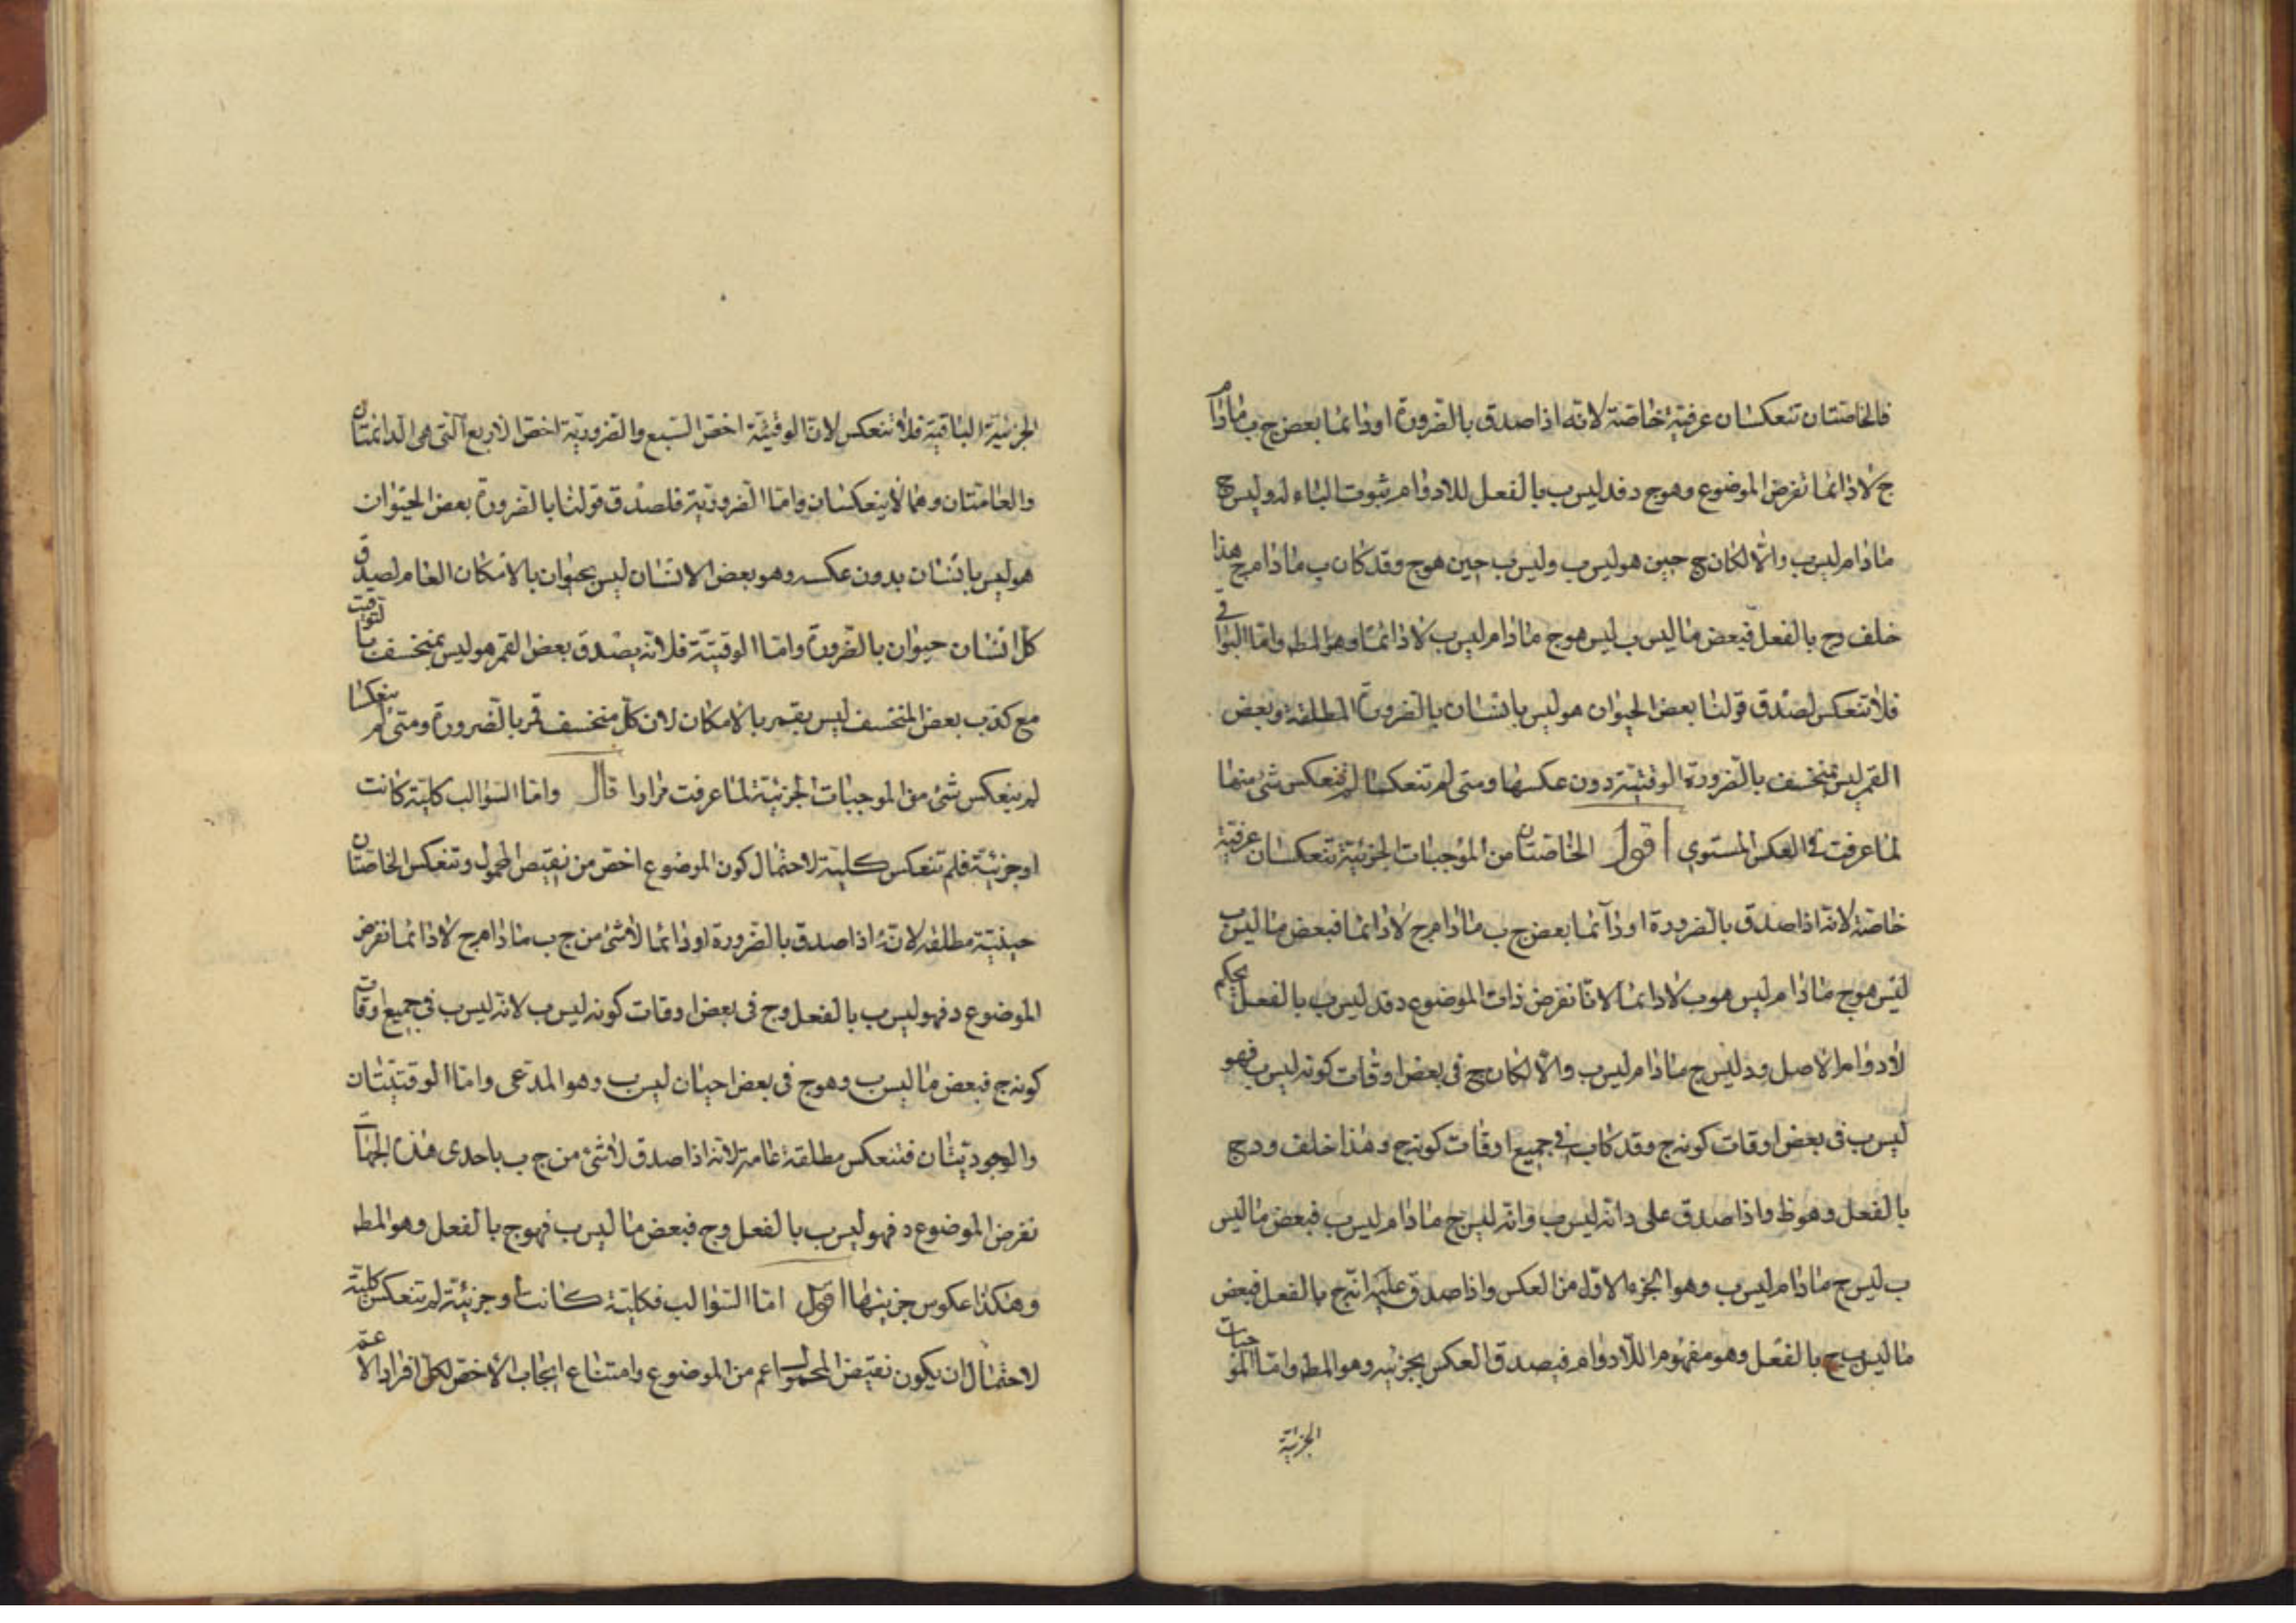 فالخاصتان تنعكسان عرفية خاصة لانه اذا صدق بالضرورة او دائما بعض ج ب مادام
ج لا دائما نفرض الموضوع وهو ج د فد ليس ب بالفعل للادوام ثبوت الباء له وليس ج
مادام ليس ب والا لكان ج حين هو ليس ب وليس ب حين هو ج وقد كان ب مادام ج هذا
خلف وج بالفعل فبعض ما ليس ب ليس هو ج مادام ليس ب لا دائما وهو المط واما البواقى
فلا تنعكس لصدق قولنا بعض الحيوان هو ليس بانسان بالضرورة المطلقة وبعض
القمر ليس بمنخسف بالضرورة الوقتية دون عكسها ومتى لم تنعكسا لم تنعكس شئ منها
لما عرفت فى العكس المستوي اقول الخاصتان من الموجبات الجزئية تنعكسان عرفية
خاصة لانه اذا صدق بالضرورة او دآئما بعض ج ب مادام ج لا دائما فبعض ما ليس ب
ليس هو ج مادام ليس هو ب لا دائما لانا نفرض ذات الموضوع د فد ليس ب بالفعل بحكم
لادوام الاصل ود ليس ج مادام ليس ب والا لكان ج فى بعض اوقات كونه ليس ب فهو
ليس ب فى بعض اوقات كونه ج وقد كان ب فى جميع اوقات كونه ج وهذا خلف ود ج
بالفعل وهو ظ واذا صدق على د انه ليس ب وانه ليس ج مادام ليس ب فبعض ما ليس
ب ليس ج مادام ليس ب وهو الجزء الاول من العكس واذا صدق عليه انه ج بالفعل فبعض
ما ليس ب ج بالفعل وهو مفهوم اللادوام فيصدق العكس بجزئيه وهو المط واما الموجبات
الجزئية
الجزئية الباقية فلا تنعكس لان الوقتية اخص السبع والضرورية اخص الاربع آلتى هى الدائمتان
والعامتان وهما لا ينعكسان واما الضرورية فلصدق قولنا بالضرورة بعض الحيوان
هو ليس بانسان بدون عكسه وهو بعض الانسان ليس بحيوان بالامكان العام لصدق
كل انسان حيوان بالضرورة واما الوقتية فلانه يصدق بعض القمر هو ليس بمنخسف بالتوقيت
مع كذب بعض المنخسف ليس بقمر بالامكان لان كل منخسف قمر بالضرورة ومتى لم ينعكسا
لم ينعكس شئ من الموجبات الجزئية لما عرفت مرارا قال واما السوالب كلية كانت
او جزئية فلم تنعكس كلية لاحتمال كون الموضوع اخص من نقيض المحمول وتنعكس الخاصتان
حينية مطلقه لانه اذا صدق بالضرورة او دائما لا شئ من ج ب مادام ج لا دائما نفرض
الموضوع د فهو ليس ب بالفعل وج فى بعض اوقات كونه ليس ب لانه ليس ب فى جميع اوقات
كونه ج فبعض ما ليس ب وهو ج فى بعض احيان ليس ب وهو المدعى واما الوقتيتان
والوجوديتان فتنعكس مطلقة عامة لانه اذا صدق لا شئ من ج ب باحدى هذه الجهات
نفرض الموضوع د فهو ليس ب بالفعل وج فبعض ما ليس ب فهو ج بالفعل وهو المط
وهكذا عكوس جزئيتها اقول اما السوالب فكلية كانت او جزئية لم تنعكس كلية
لاحتمال ان يكون نقيض المحمول اعم من الموضوع وامتناع ايجاب الاخص لكل افراد الاعم